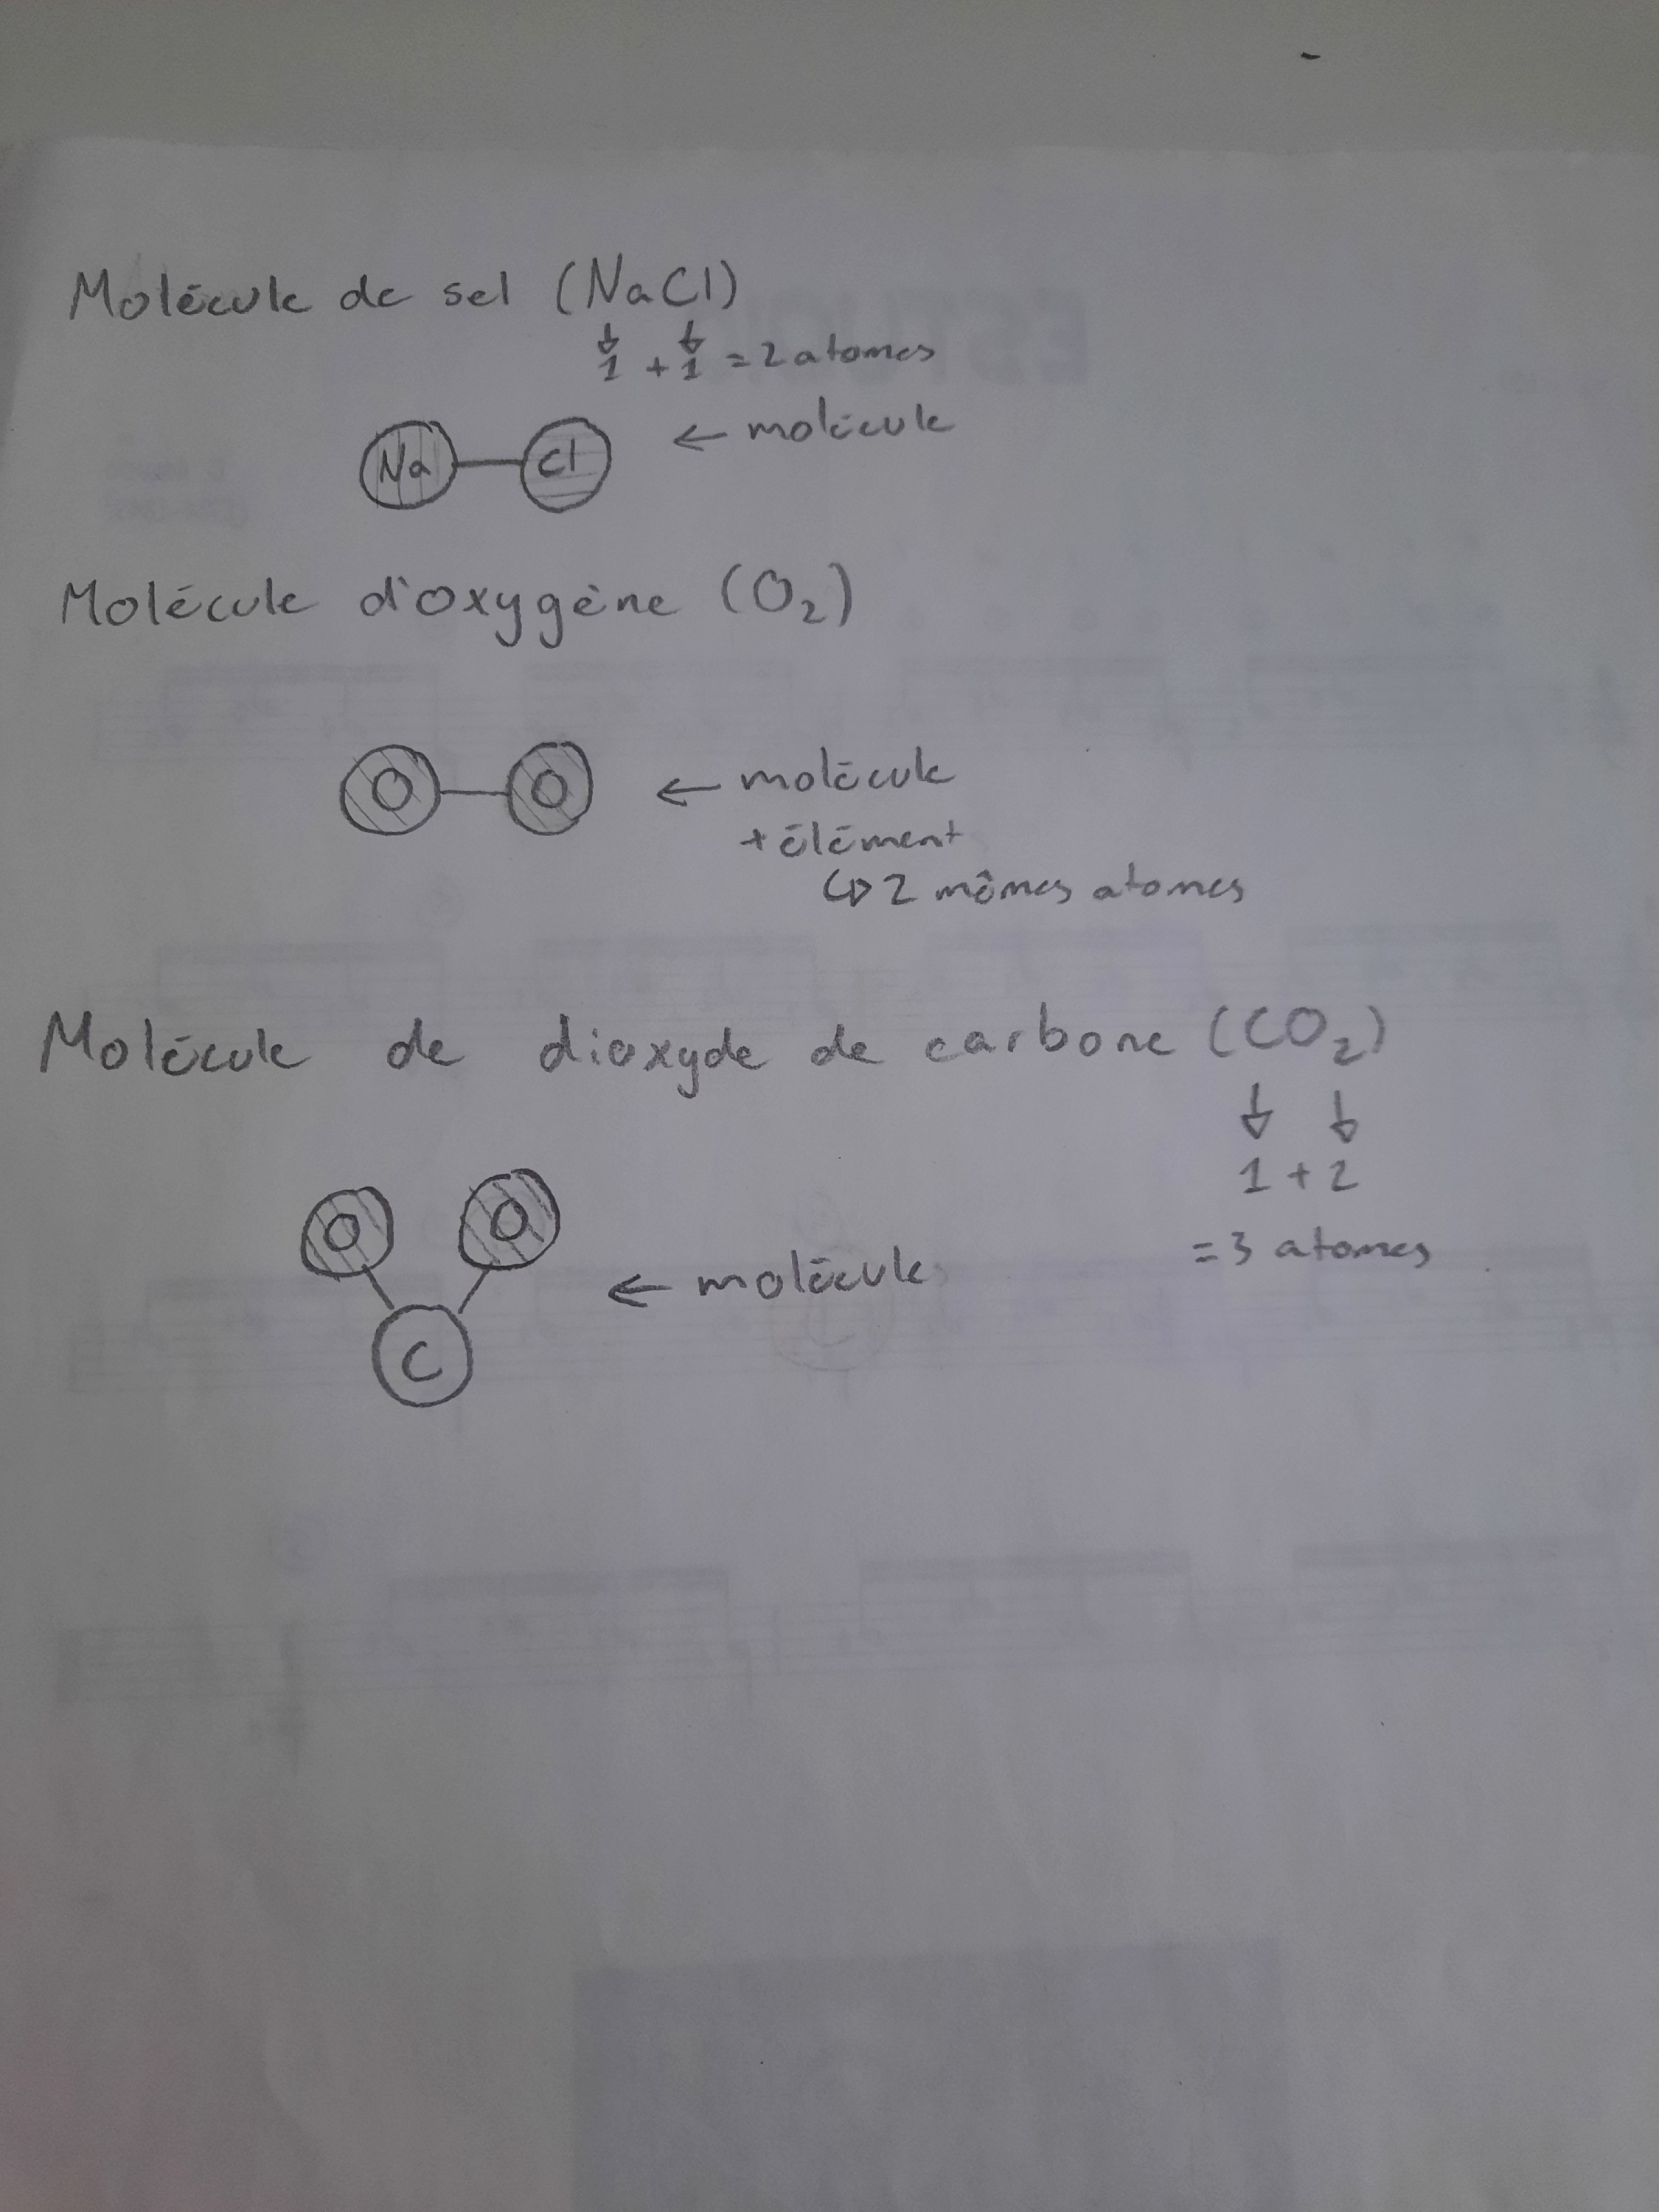 Molécule de sel (NaCl)
1 + 1 = 2 atomes
Na Cl ← molécule
Molécule d'oxygène (O₂)
O O ← molécule
+ élément
↳ 2 mêmes atomes
Molécule de dioxyde de carbone (CO₂)
1 + 2
= 3 atomes
O O
← molécule
C
ESTUDIO